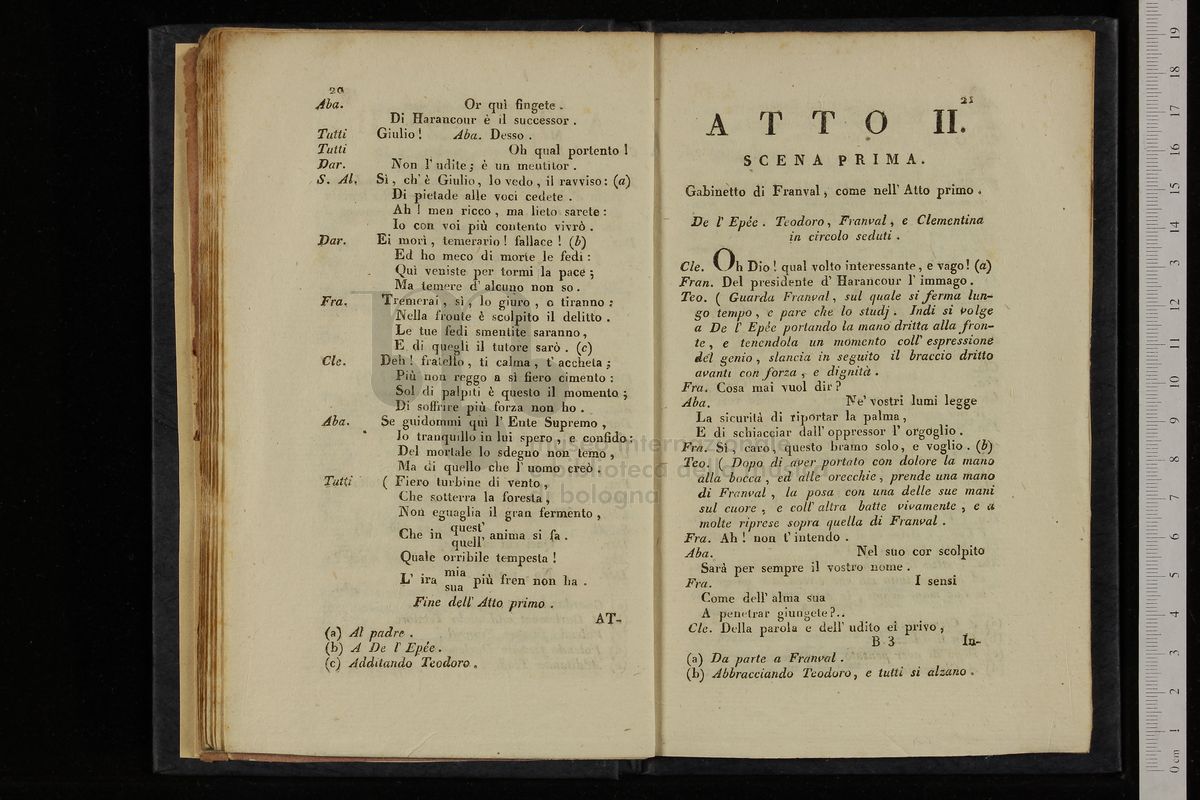 20
Aba. Or quì fingete .
Di Harancour è il successor .
Tutti Giulio ! Aba. Desso .
Tutti Oh qual portento !
Dar. Non l' udite ; è un mentitor .
S. Al. Sì , ch' è Giulio , lo vedo , il ravviso : (a)
Di pietade alle voci cedete .
Ah ! men ricco , ma lieto sarete :
Io con voi più contento vivrò .
Dar. Ei morì , temerario ! fallace ! (b)
Ed ho meco di morte le fedi :
Quì veniste per tormi la pace ;
Ma temere d' alcuno non so .
Fra. Tremerai , sì , lo giuro , o tiranno :
Nella fronte è scolpito il delitto .
Le tue fedi smentite saranno ,
E di quegli il tutore sarò . (c)
Cle. Deh ! fratello , ti calma , t' accheta ;
Più non reggo a sì fiero cimento :
Sol di palpiti è questo il momento ;
Di soffrire più forza non ho .
Aba. Se guidommi quì l' Ente Supremo ,
Io tranquillo in lui spero , e confido :
Del mortale lo sdegno non temo ,
Ma di quello che l' uomo creò .
Tutti ( Fiero turbine di vento ,
Che sotterra la foresta ,
Non eguaglia il gran fermento ,
Che in quest' anima si fa .
quell'
Quale orribile tempesta !
L' ira mia più fren non ha .
sua
Fine dell' Atto primo .
AT-
(a) Al padre .
(b) A De l' Epée .
(c) Additando Teodoro .
21
ATTO II.
SCENA PRIMA.
Gabinetto di Franval , come nell' Atto primo .
De l' Epée . Teodoro , Franval , e Clementina
in circolo seduti .
Cle. Oh Dio ! qual volto interessante , e vago ! (a)
Fran. Del presidente d' Harancour l' immago .
Teo. ( Guarda Franval , sul quale si ferma lun-
go tempo , e pare che lo studj . Indi si volge
a De l' Epée portando la mano dritta alla fron-
te , e tenendola un momento coll' espressione
del genio , slancia in seguito il braccio dritto
avanti con forza , e dignità .
Fra. Cosa mai vuol dir ?
Aba. Ne' vostri lumi legge
La sicurità di riportar la palma ,
E di schiacciar dall' oppressor l' orgoglio .
Fra. Sì , caro , questo bramo solo , e voglio . (b)
Teo. ( Dopo di aver portato con dolore la mano
alla bocca , ed alle orecchie , prende una mano
di Franval , la posa con una delle sue mani
sul cuore , e coll' altra batte vivamente , e a
molte riprese sopra quella di Franval .
Fra. Ah ! non t' intendo .
Aba. Nel suo cor scolpito
Sarà per sempre il vostro nome .
Fra. I sensi
Come dell' alma sua
A penetrar giungete ?..
Cle. Della parola e dell' udito ei privo ,
B 3 In-
(a) Da parte a Franval .
(b) Abbracciando Teodoro , e tutti si alzano .
museo internazionale
biblioteca della musica
di bologna
0 cm 1 2 3 4 5 6 7 8 9 10 11 12 13 14 15 16 17 18 19